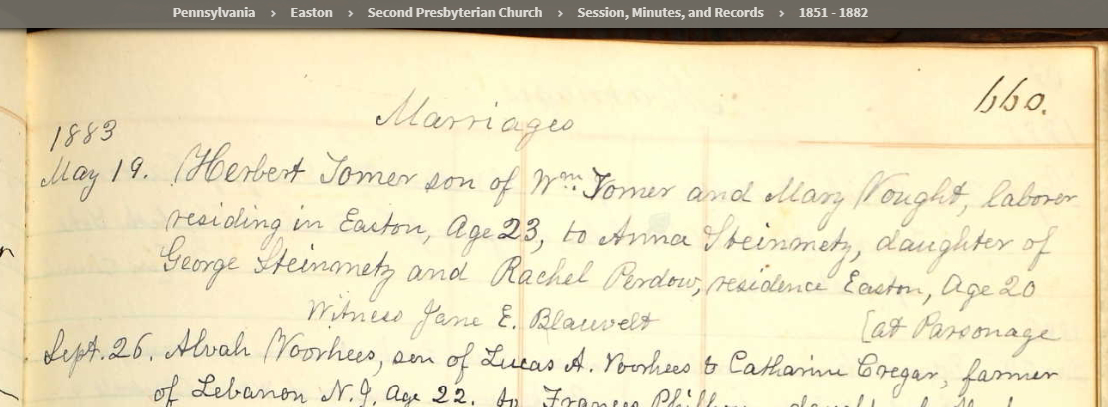 Pennsylvania › Easton › Second Presbyterian Church › Session, Minutes, and Records › 1851 - 1882
660.
Marriages
1883
May 19. Herbert Tomer son of Wm. Tomer and Mary Vought, laborer
residing in Easton, Age 23, to Anna Steinmetz, daughter of
George Steinmetz and Rachel Perdow, residence Easton, Age 20
Witness Jane E. Blauvelt [at Parsonage
Sept. 26. Alvah Voorhees, son of Lucas A. Voorhees & Catharine Cregar, farmer
of Lebanon N.J. Age 22. to Frances